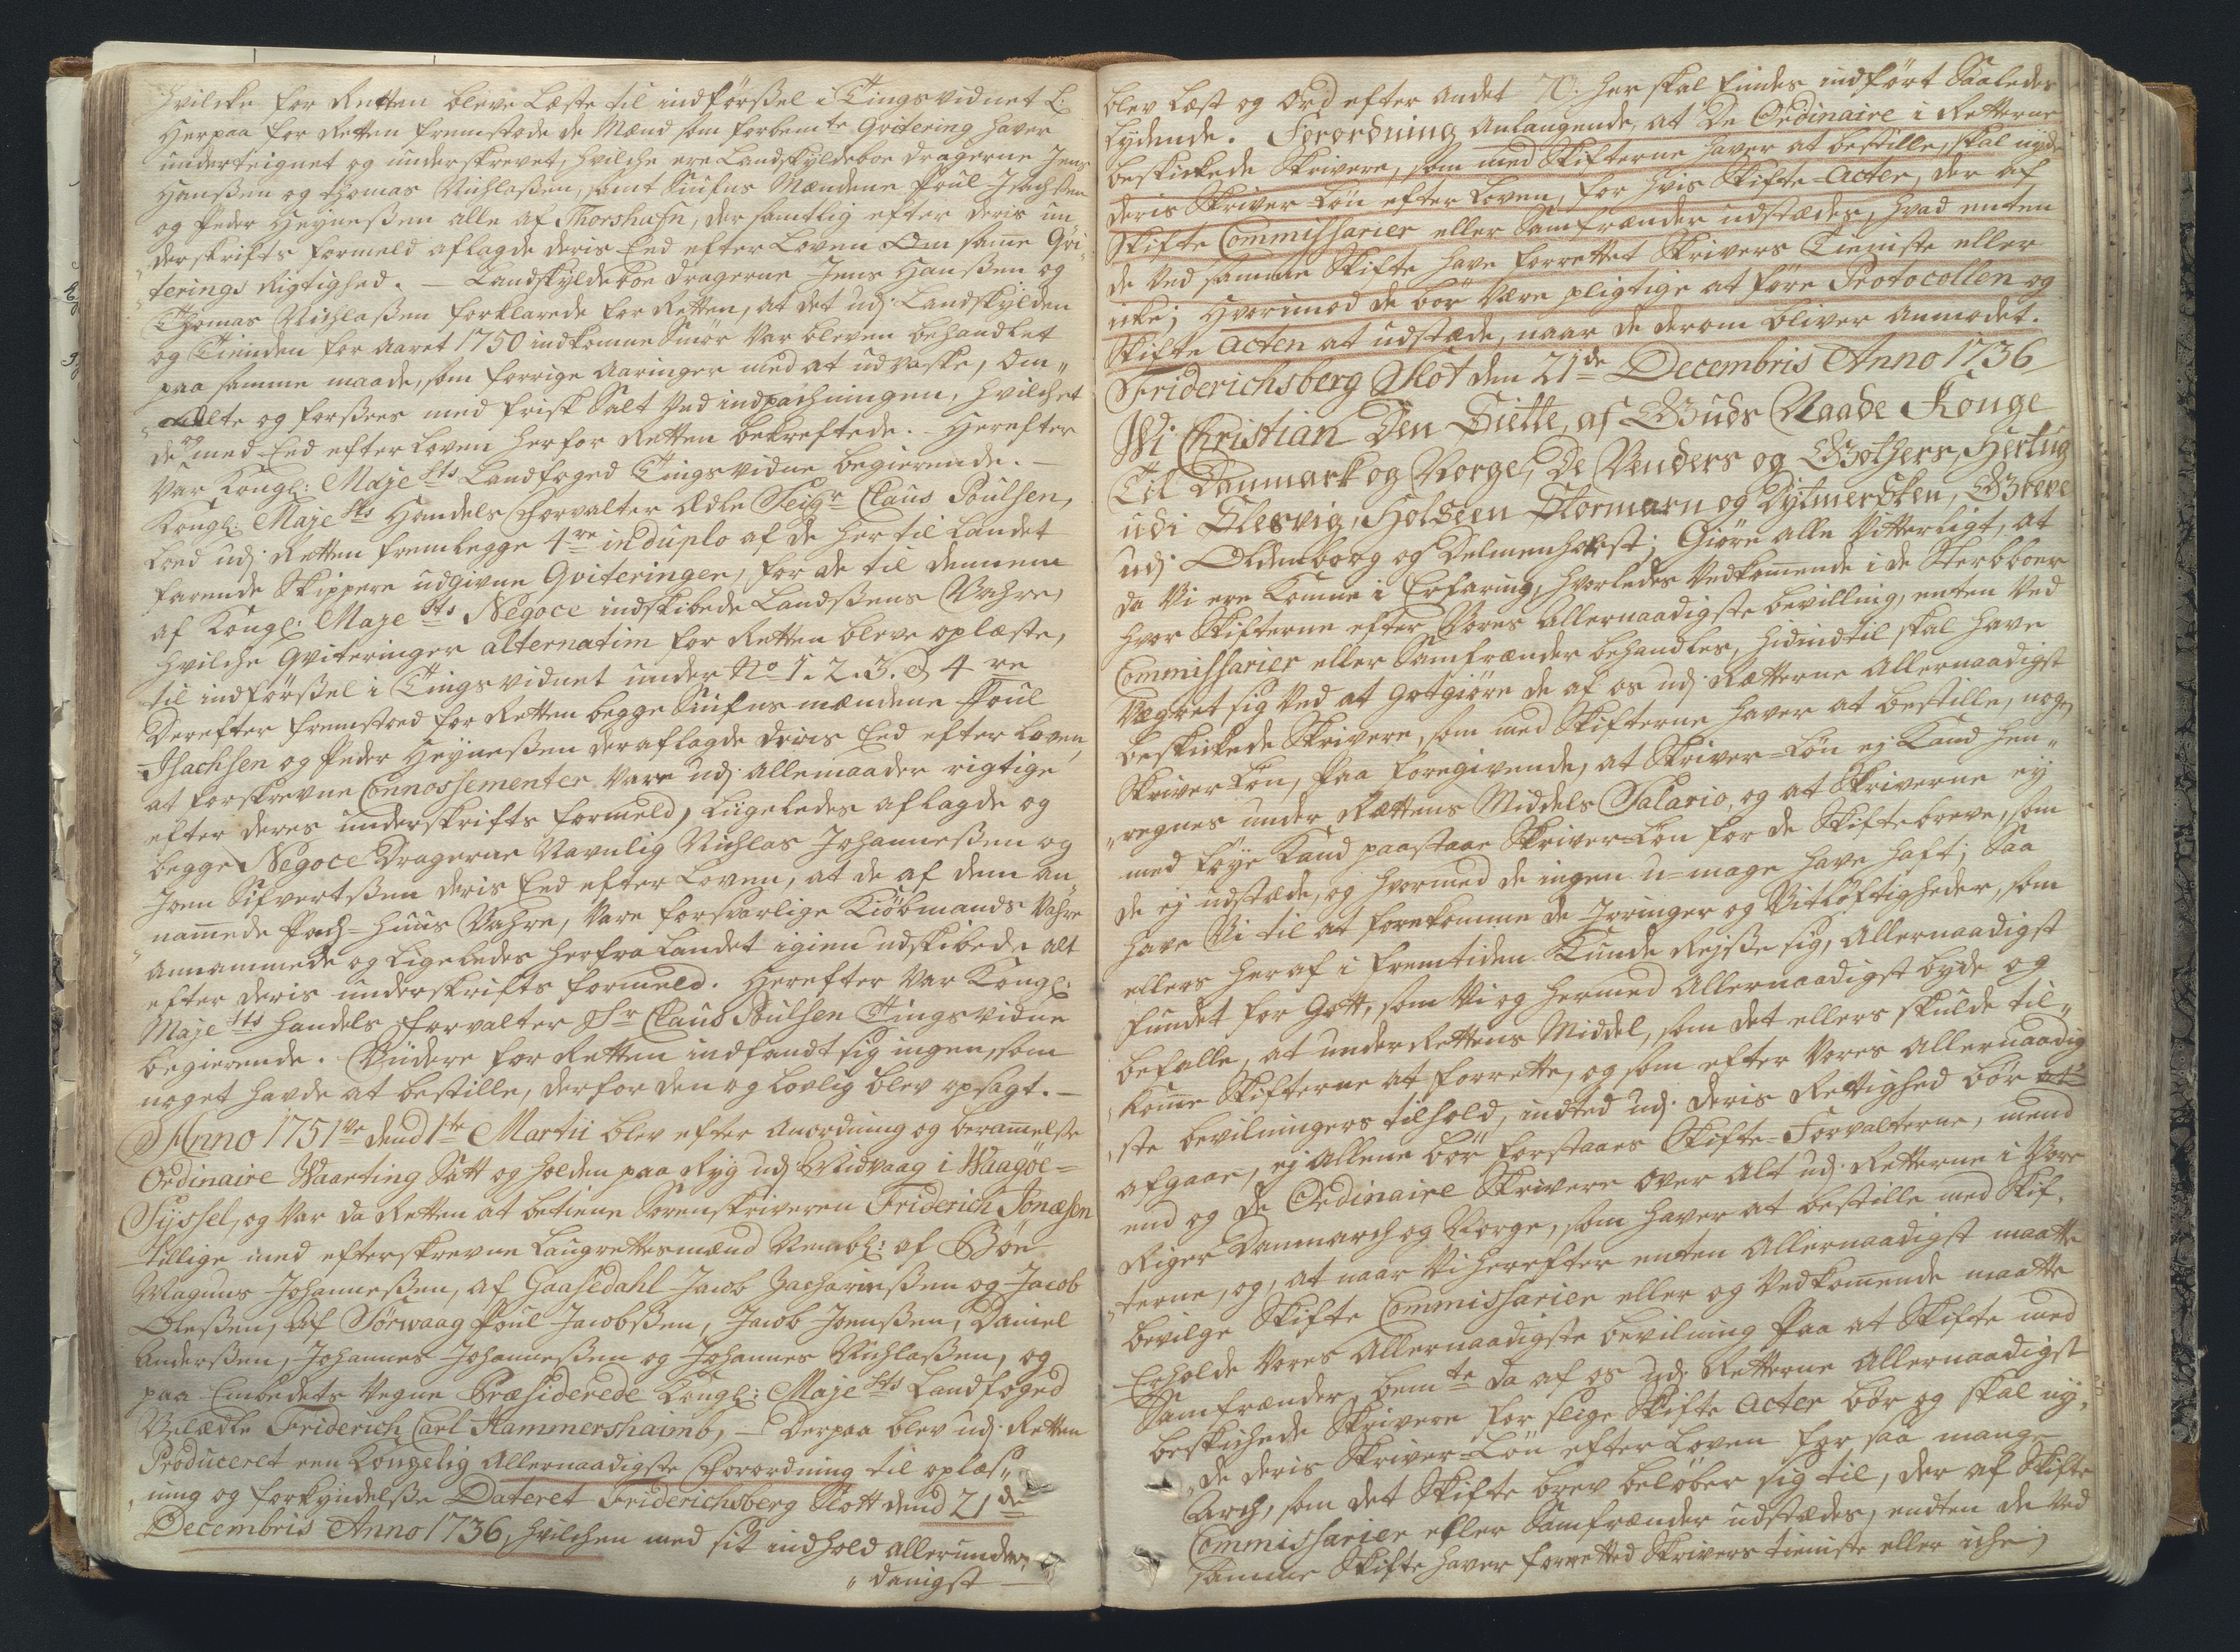 hvilcke for Retten bleve Læste til indförßel i Tingsvidnet L:
Herpaa for Retten fremstode de Mænd som forbemte Qvitering haver
underteignet og underskrevet, hvilche ere Landskyldeboe dragerne Jens
Hanßen og Thomas Nichlaßen, samt Siufns Mændene Poul Isachsen
og Peder Heÿneßen alle af Thorshafn, der samtlig efter deris un
derskrifts formeld aflagde deris Eed efter Loven Om samme Qvi„
„terings Rigtighed. — Landskÿldeboe dragerne Jens Hanßen og
Thomas Nichlaßen forklarede for Retten, at det udj Landskÿlden
og Tienden for Aaret 1750 indkomne Smör var bleven behandlet
paa samme maade, som forrige Aaringer med at udvaske, Om„
„ælte og forsees med frisk Salt ved indpachningen, hvilchet
de og med Eed efter Loven her for Retten bekreftede. – Herefter
var Kongl: Majests Landfoged Tingsvidne begierende. —
Kongl: Majests Handels Forvalter Ædle Seigr Claus Poulsen,
Loed udj Retten fremlegge 4re in duplo af de her til Landet
farende Skippere udgivne Qviteringer, for de til dennem
af Kongl: Majests Negoce indskibede Landßens Vahre,
hvilche Qviteringer alternatim for Retten bleve oplæste,
til indförßel i Tingsvidnet under No 1. 2. 3. & 4re
Derefter fremstoed for Retten begge Siufns mændene Poul
Isachsen og Peder Heÿneßen der aflagde deris Eed efter Loven,
at forskrevne Connossementer vare udj allemaader rigtige
efter deres underskrifts formeld, Liigeledes aflagde og
begge Negoce Dragerne Navnlig Nichlas Johanneßen og
Joen Sifvertßen deris Eed efter Loven, at de af dem an
nammede Pach-Huus Vahre, vare forsvarlige Kiöbmands Vahre
annammede og Ligeledes herfra Landet igien udskibede alt
efter deris underskrifts formeld. Herefter var Kongl:
Majests Handels Forvalter Sr Claus Poulsen Tingsvidne
begierende. Viidere for Retten indfandt sig ingen, som
noget havde at bestille, derfor den og Lovlig blev opsagt. —
Anno 1751ve dend 1te Martii blev efter Anordning og berammelse
Ordinaire Vaarting Satt og holden paa Ryg udj Midvaag i Waagöe=
Sÿssel, og var da Retten at betiene Sorenskriveren Friderich Jonæsen
tillige med efterskrevne Laugrettesmænd Nemlig: af Böe
Magnus Johanneßen, af Gaasedahl Jacob Zachariæßen og Jacob
Oleßen, Af Sörwaag Poul Jacobßen, Jacob Joenßen, Daniel
Anderßen, Johannes Johanneßen og Johannes Nichlaßen, og
paa Embedets vegne Præsiderede Kongl: Majests Landfoged
Velædle Friderich Carl Hammershaimb, — Derpaa blev udj Retten
Produceret een Kongelig Allernaadigste Forordning til oplæs„
„ning og forkyndelße Dateret Friderichsberg Slott dend 21de
Decembris Anno 1736, hvilchen med sit indhold allerunder„
„danigst —
blev Læst og Ord efter andet 70. her skal findes indfört Saaledes
Lydende. Forordning Anlangende, at De Ordinaire i Retterne
beskickede Skrivere, som med Skifterne haver at bestille, skal nyde
deris Skriver-Lön efter Loven, for hvis Skifte-Acter, der af
Skifte Commissarier eller Samfrænder udstædes, hvad enten
de ved samme Skifte have forrettet Skrivers Tieniste eller
icke; Hvorimod de bör være pligtige at före Protocollen og
Skifte Acten at udstæde, naar de derom bliver anmodet.
Friderichsberg Slot den 21de Decembris Anno 1736
Wi Christian Den Siette, af Guds Naade Konge
Til Danmark og Norge, De Venders og Gothers, Hertug
udi Slesvig, Holsten Stormarn og Dytmersken, Greve
udj Oldenborg og Delmenhorst; Giöre alle vitterligt, at
da Vi ere Komne i Erfaring, hvorledes vedkommende i de Sterbboer
hvor Skifterne efter Vores Allernaadigste bevilling, enten ved
Commissarier eller Samfrænder behandles, hidindtil skal have
vægret sig ved at gotgiöre de af os udj Rætterne Allernaadigst
beskickede Skrivere, som med Skifterne haver at bestille, noge
Skriver-Lön, paa foregivende, at Skriver-Lön ej kand hen„
„regnes under Rættens Middels Salario, og at Skriverne ej
med föÿe kand paastaae Skriver-Lön for de Skiftebreve, som
de ej udstæde, og hvormed de ingen u-mage have haft; Saa
have Vi til at forekomme de Irringer og Vitlöftigheder, som
ellers heraf i fremtiden kunde Rejße sig, Allernaadigst
fundet for Gott, som Vi og hermed Allernaadigst byde og
befalle, at under Rettens Middel, som det ellers skulde til„
„komme Skifterne at forrette, og som efter Vores Allernaadig
„ste bevilningers tilhold, indted udj deris Rettighed bör at
afgaae, ej allene bör forstaaes Skifte-Forvalterne, mend
end og de Ordinaire Skrivere over alt udj Retterne i Vore
Riger Danmarch og Norge, som haver at bestille med Skif„
„terne, og, at naar Vi herefter enten Allernaadigst maatte
bevilge Skifte Commissarier eller og vedkommende maatte
Erholde Vores Allernaadigste bevilning paa at Skifte med
Samfrænder, bemte da af os udj Retterne Allernaadigst
beskickede Skrivere for slige Skifte Acter bör og skal nÿ„
„de deris Skriver-Lön efter Loven for saa mange
Arch, som det Skifte brev belöber sig til, der af Skifte
Commissarier eller Samfrænder udstædes, endten de ved
samme Skifte haver forretted Skrivers tieniste eller iche,